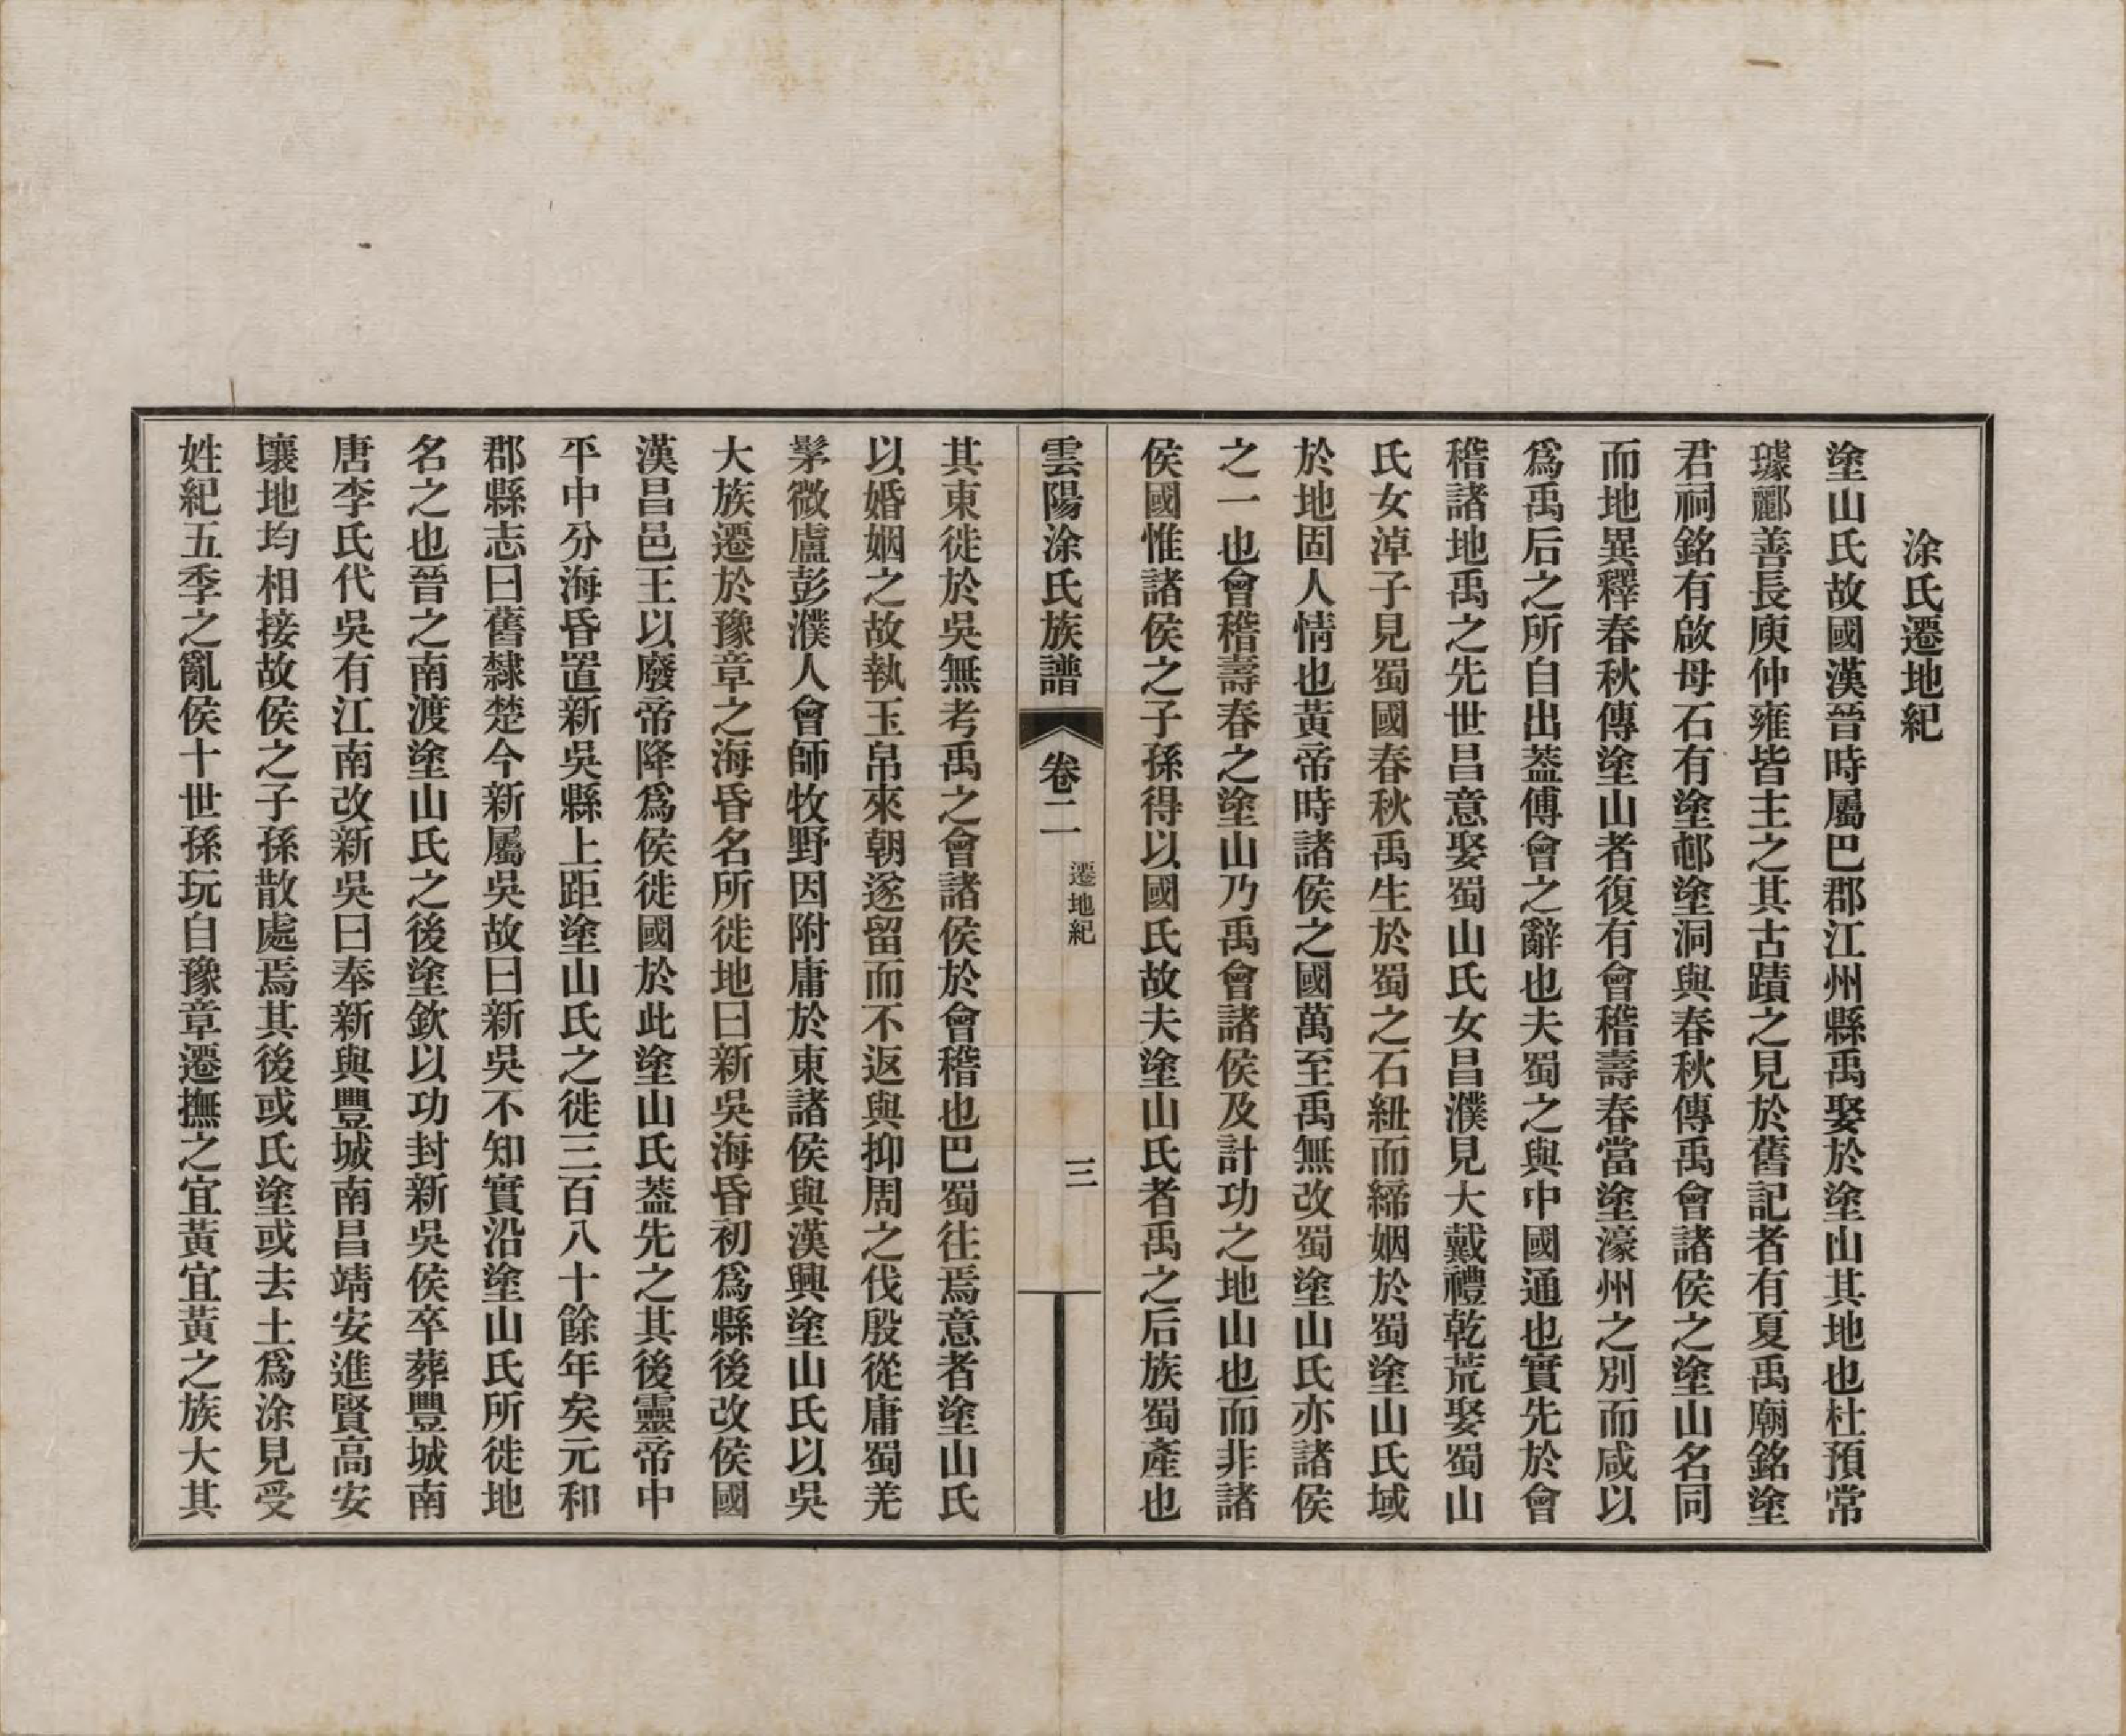 涂氏遷地紀
塗山氏故國漢晉時屬巴郡江州縣禹娶於塗山其地也杜預常
璩酈善長庾仲雍皆主之其古蹟之見於舊記者有夏禹廟銘塗
君祠銘有啟母石有塗邨塗洞與春秋傳禹會諸侯之塗山名同
而地異釋春秋傳塗山者復有會稽壽春當塗濠州之別而咸以
爲禹后之所自出蓋傅會之辭也夫蜀之與中國通也實先於會
稽諸地禹之先世昌意娶蜀山氏女昌濮見大戴禮乾荒娶蜀山
氏女淖子見蜀國春秋禹生於蜀之石紐而締姻於蜀塗山氏域
於地固人情也黃帝時諸侯之國萬至禹無改蜀塗山氏亦諸侯
之一也會稽壽春之塗山乃禹會諸侯及計功之地山也而非諸
侯國惟諸侯之子孫得以國氏故夫塗山氏者禹之后族蜀產也
雲陽涂氏族譜 卷二 遷地紀 三
其東徙於吳無考禹之會諸侯於會稽也巴蜀往焉意者塗山氏
以婚姻之故執玉帛來朝遂留而不返與抑周之伐殷從庸蜀羌
髳微盧彭濮人會師牧野因附庸於東諸侯與漢興塗山氏以吳
大族遷於豫章之海昏名所徙地曰新吳海昏初爲縣後改侯國
漢昌邑王以廢帝降爲侯徙國於此塗山氏蓋先之其後靈帝中
平中分海昏置新吳縣上距塗山氏之徙三百八十餘年矣元和
郡縣志曰舊隸楚今新屬吳故曰新吳不知實沿塗山氏所徙地
名之也晉之南渡塗山氏之後塗欽以功封新吳侯卒葬豐城南
唐李氏代吳有江南改新吳曰奉新與豐城南昌靖安進賢高安
壤地均相接故侯之子孫散處焉其後或氏塗或去土爲涂見受
姓紀五季之亂侯十世孫玩自豫章遷撫之宜黃宜黃之族大其